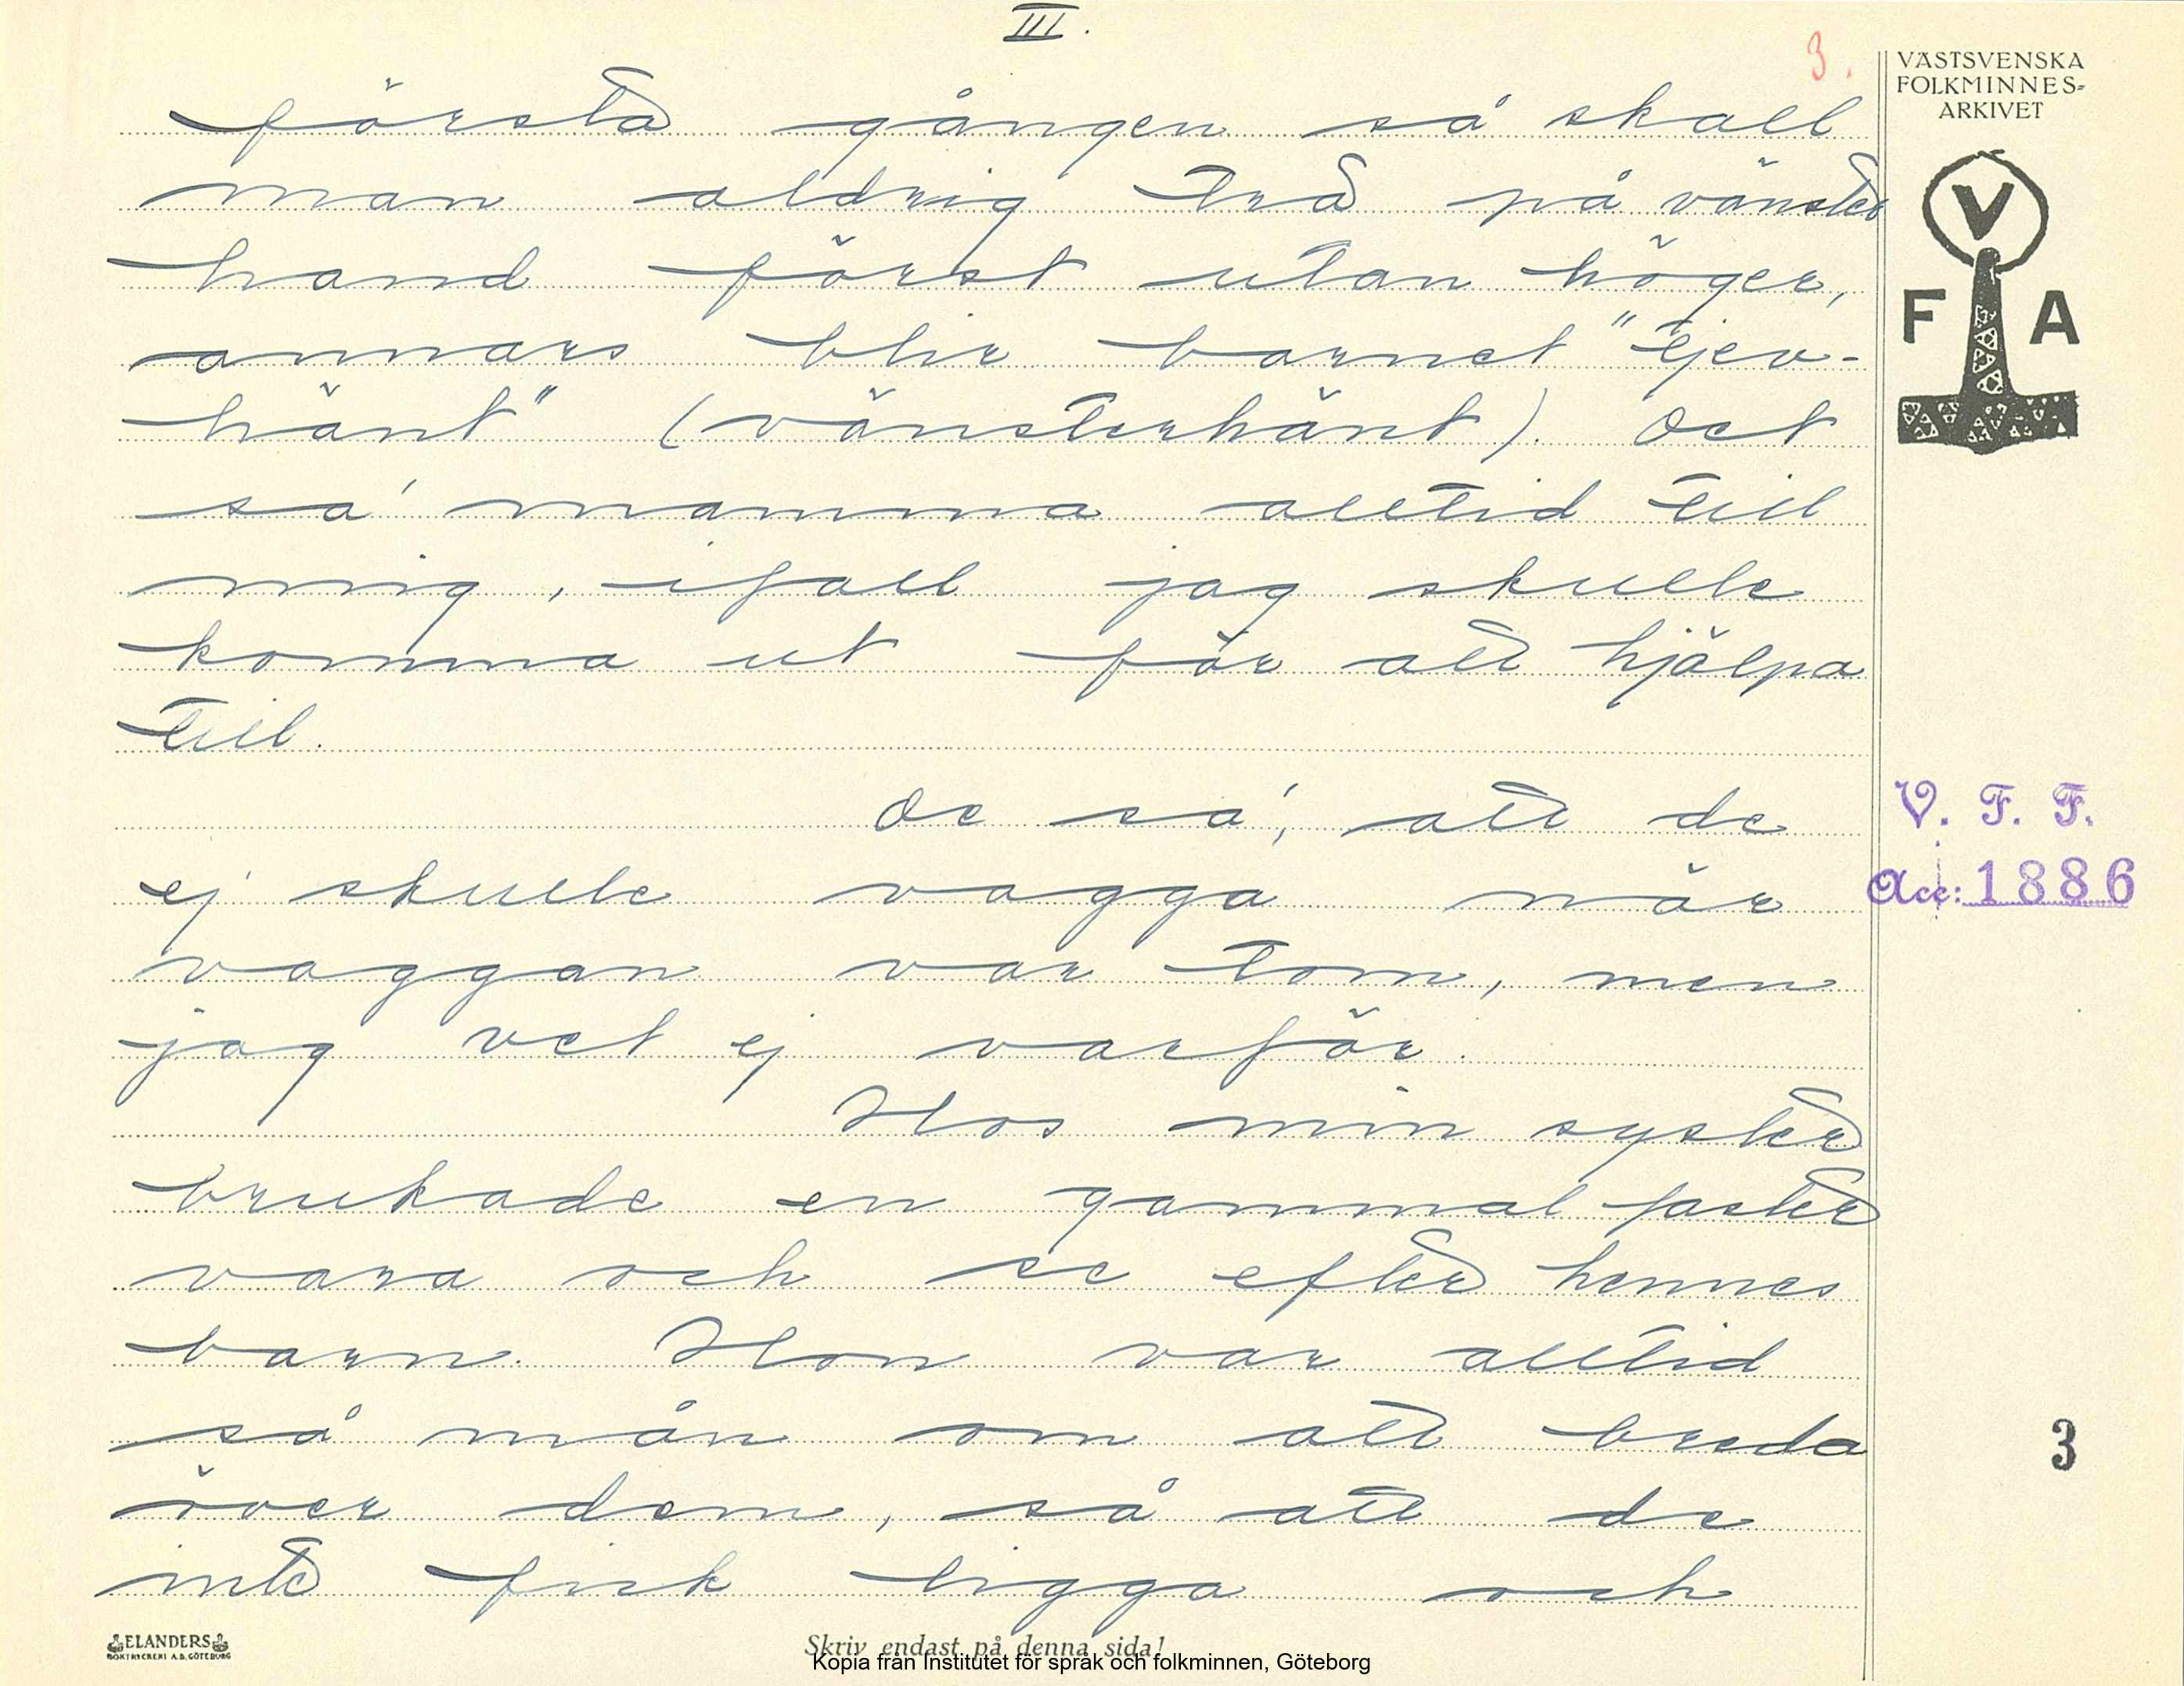 III.
3.
VÄSTSVENSKA
FOLKMINNES-
ARKIVET
V
F A
första gången så skall
man aldrig trä på vänster
hand först utan höger,
annars blir barnet "ejer-
hänt" (vänsterhänt). Det
sa' mamma alltid till
mig, ifall jag skulle
komma ut för att hjälpa
till.
De sa', att de
ej skulle vagga när
vaggan var tom, men
jag vet ej varför.
Hos min syster
brukade en gammal faster
vara och se efter hennes
barn. Hon var alltid
så mån om att breda
över dem, så att de
inte fick ligga och
V. F. F.
Acc: 1886
3
ELANDERS
BOKTRYCKERI A.B. GÖTEBORG
Skriv endast på denna sida!
Kopia från Institutet för språk och folkminnen, Göteborg